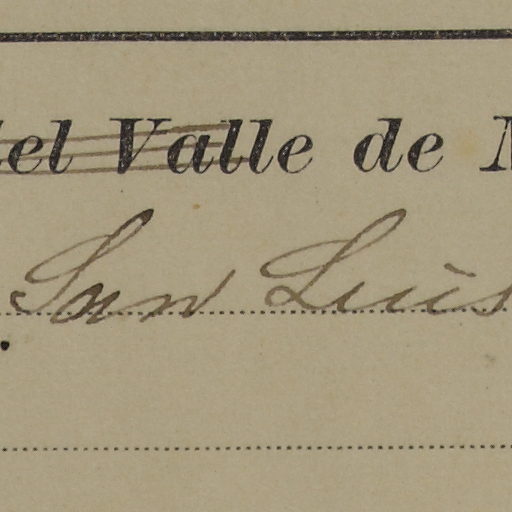 del Valle de
San Luis